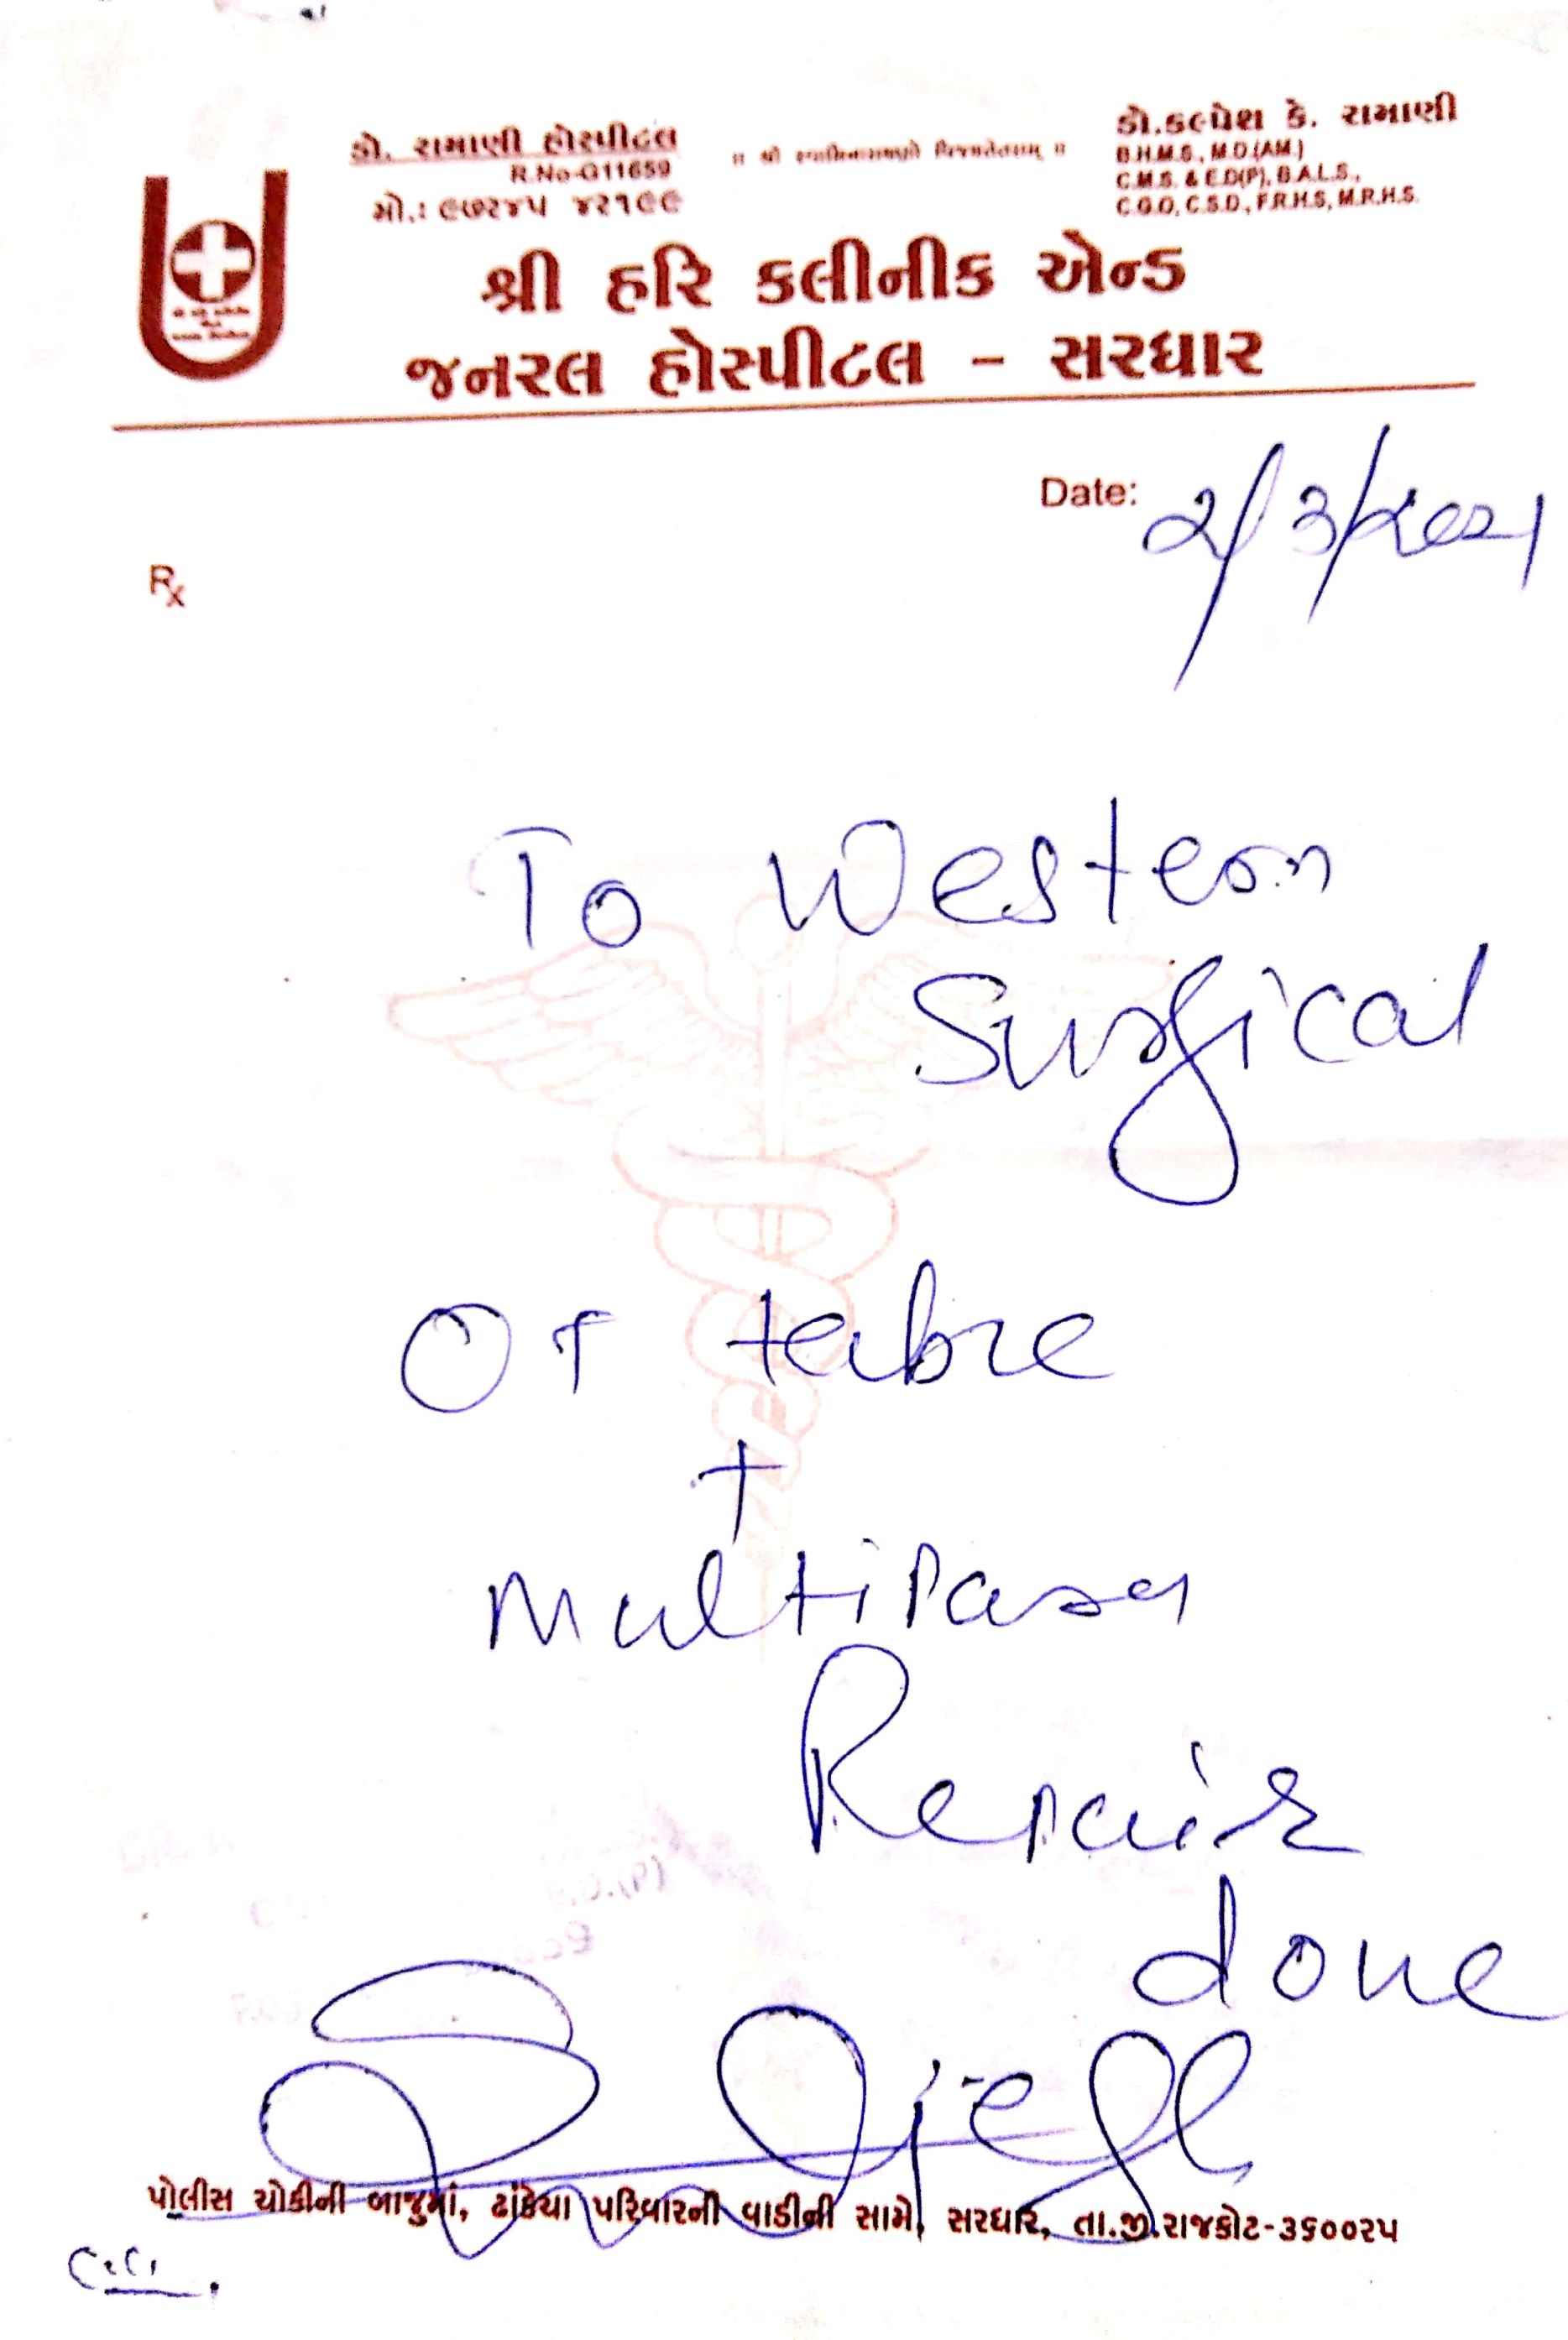 ડો. રામાણી હોસ્પીટલ
R.No-G11659
મો.: ૯૭૨૪૫ ૪૨૧૯૯
॥ શ્રી સ્વામિનારાયણો વિજયતેતરામ્ ॥
ડો.કલ્પેશ કે. રામાણી
B.H.M.S., M.D.(AM.)
C.M.S. & E.D(P), B.A.L.S.,
C.G.O, C.S.D., F.R.H.S, M.R.H.S.
શ્રી હરિ કલીનીક એન્ડ
જનરલ હોસ્પીટલ - સરધાર
Date: ૨/૩/૨૦૨૧
Rx
To Western
Surgical
OT table
+
multipara
Repair
done
પોલીસ ચોકીની બાજુમાં, ઢાંકેચા પરિવારની વાડીની સામે, સરધાર, તા.જી.રાજકોટ-૩૬૦૦૨૫